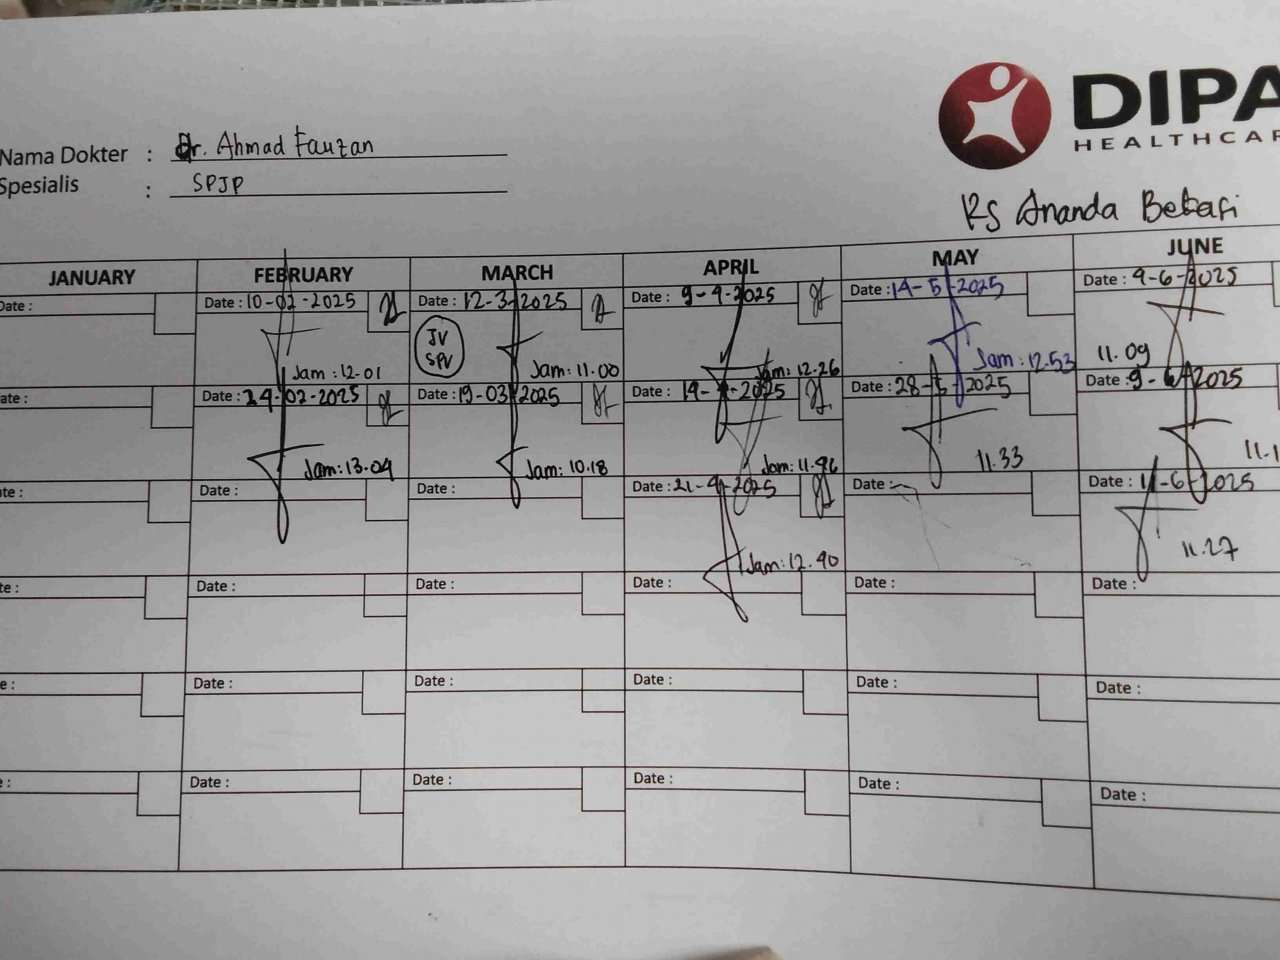 DIPA
HEALTHCAR
Nama Dokter : Dr. Ahmad Fauzan
Spesialis : SPJP
RS Ananda Bekasi
JANUARY FEBRUARY MARCH APRIL MAY JUNE
Date : Date : 10-02-2025 Date : 12-3-2025 Date : 9-4-2025 Date : 14-5-2025 Date : 9-6-2025
JV
SPV
Jam : 12.01 Jam : 11.00 Jam : 12.26 Jam : 12.53 11.09
ate : Date : 24-02-2025 Date : 19-03-2025 Date : 14-4-2025 Date : 28-5-2025 Date : 9-6-2025
Jam : 13.04 Jam : 10.18 Jam : 11.46 11.33 11.1
te : Date : Date : Date : 21-4-2025 Date : Date : 11-6-2025
Jam : 12.40 11.27
te : Date : Date : Date : Date : Date :
e : Date : Date : Date : Date : Date :
: Date : Date : Date : Date : Date :